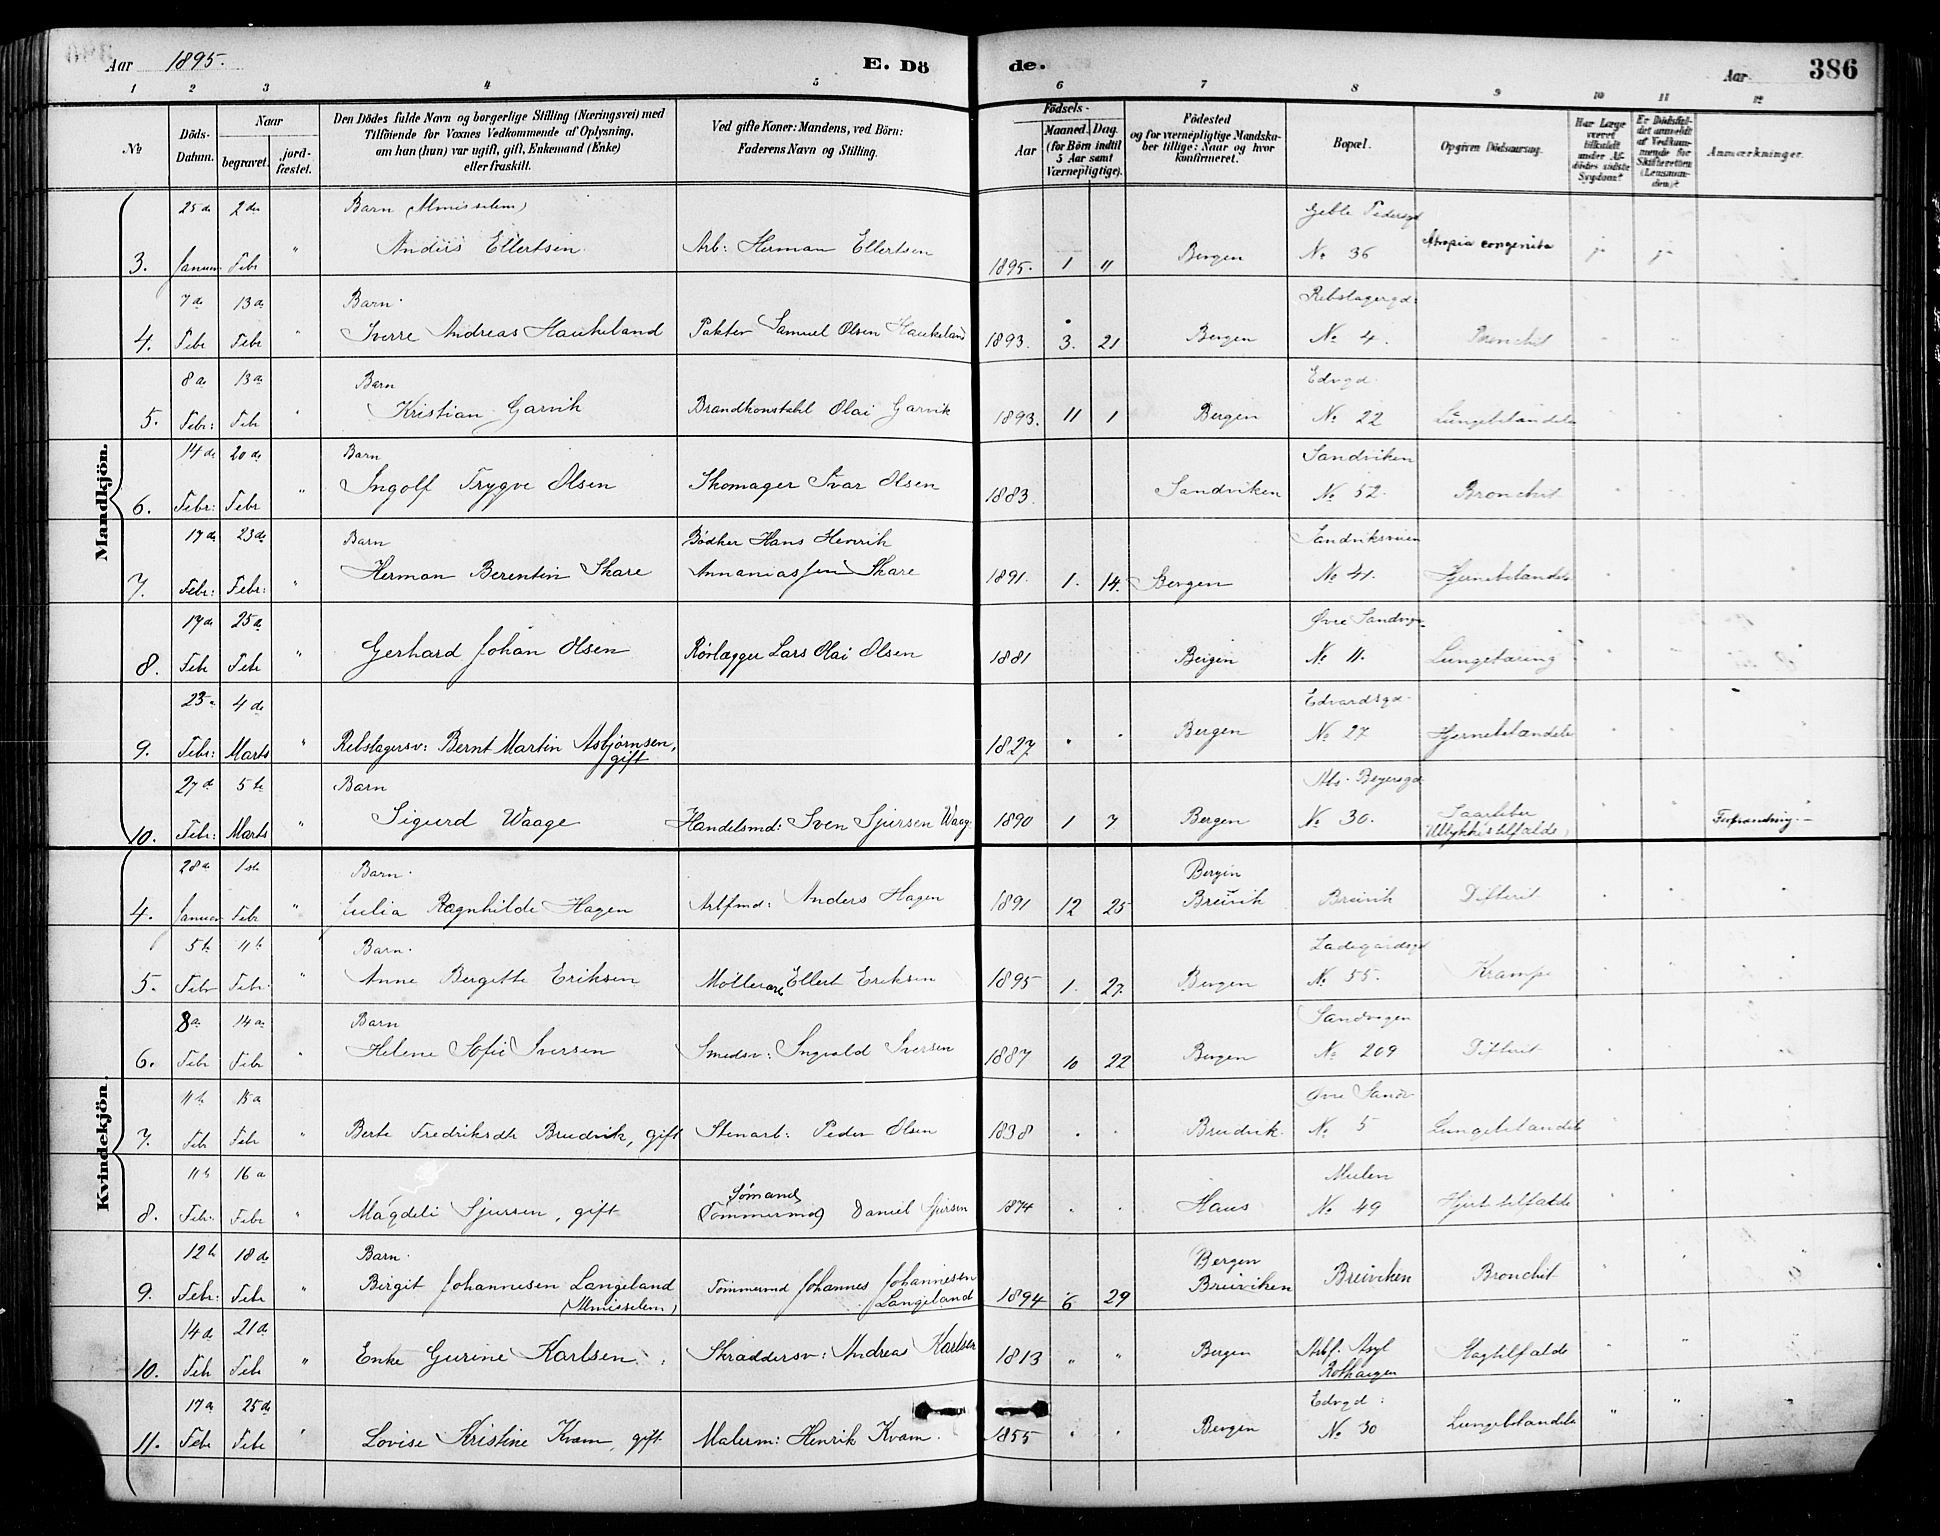 Aar 1895. E. Dö de. Aar 386
1 2 3 4 5 6 7 8 9 10 11 12
№ Döds-Datum. Naar begravet. jord-fæstet. Den Dödes fulde Navn og borgerlige Stilling (Næringsvei) med Tilföiende for Voxnes Vedkommende af Oplysning, om han (hun) var ugift, gift, Enkemand (Enke) eller fraskilt. Ved gifte Koner: Mandens, ved Börn: Faderens Navn og Stilling. Födsels- Aar Maaned. Dag. (for Börn indtil 5 Aar samt Værnepligtige). Födested og for værnepligtige Mandskaber tillige: Naar og hvor konfirmeret. Bopæl. Opgiven Dödsaarsag. Har Læge været tilkaldt under Afdödes sidste Sygdom? Er Dödsfaldet anmeldt af Vedkommende for Skifteretten (Lensmanden)? Anmærkninger.
Mandkjön.
25de 2den Barn (Mmisselem) Geble Pedersgd
3. Januar Febr " Andürs Ellertsen Arb: Herman Ellertsen 1895. 1 11 Bergen No 36 Atropia congenita ja ja
7de 13de Barn. Rebslagergd:
4. Febr Febr " Sverre Andreas Haukeland Pakter Samuel Olsen Haukeland 1893. 3. 21 Bergen No 4. Bronchit " "
8de 13de Barn Edvgd.
5. Febr: Feb " Kristian Garvik Brandkonstabl Olai Garvik 1893. 11 1 Bergen No 22 Lungebetændelse
14de 20de Barn Sandviken
6. Febr: Febr " Ingolf Trygve Olsen Skomager Ivar Olsen 1883. Sandviken No 52. Bronchit
17de 23de Barn Bødker Hans Henrik Sandviksveien
7. Febr: Febr: " Herman Berentin Skare Annaniassen Skare 1891. 1. 14. Bergen No 41. Hjernebetændelse
17de 25de Øvre Sandvgn
8. Feb Feb " Gerhard Johan Olsen Rørlægger Lars Olai Olsen 1881 Bergen No 11. Lungetæring
23de 4de Edvardsgd.
9. Febr: Marts " Rebslagersv: Bernt Martin Asbjørnsen, gift 1827 " " Bergen No 27 Hjernebetændelse
27de 5te Barn Abs. Beyersgd
10. Febr: Marts " Sigurd Waage Handelsmd: Sven Sjursen Waage 1890 1 7 Bergen No 30. Saarfeber (Ulykkestilfælde) Forbrænding.
Kvindekjön.
28de 1ste Barn. Bergen
4. Januar Febr " Julia Ragnhilde Hagen Arbfmd: Anders Hagen 1891 12 25 Breivik Breivik Difterit
5te 11te Barn. Ladegaardsgd
5. Febr Febr. " Anne Bergitte Eriksen Møllerarb Ellert Eriksen 1895 1. 27. Bergen No 55. Krampe
8de 14de Barn Sandvegen
6. Febr Febr " Helene Sofie Iversen Smedsv: Ingvald Iversen 1887 10 22 Bergen No 209 Difterit
11te 15de Øvre Sandv
7. Feb Feb " Berte Fredriksdtr Brudvik, gift Stenarb: Peder Olsen 1838 " " Brudvik. No 5 Lungebetændelse
11te 16de Mulen
8. Febr. Febr " Magdeli Sjursen, gift Sømand (Tømmermd) Daniel Sjursen 1874 " " Haus No 49 Hjertetilfælde
12te 18de Barn. Bergen
9. Febr: Febr " Birgit Johannesen Langeland (Mmisselem) Tömmermd Johannes Johannesen Langeland 1894 6 29 Breiviken Breiviken Bronchit
14de 21de Arbf. Asyl
10. Feb Feb " Enke Gurine Karlsen. Skræddersv: Andreas Karlsen 1813 " " Bergen Rothaugen Slagtilfælde
17de 25de Edvgd:
11. Febr Febr " Lovise Kristine Kvam, gift Malerm: Henrik Kvam. 1855 " " Bergen No 30 Lungebetændelse " "